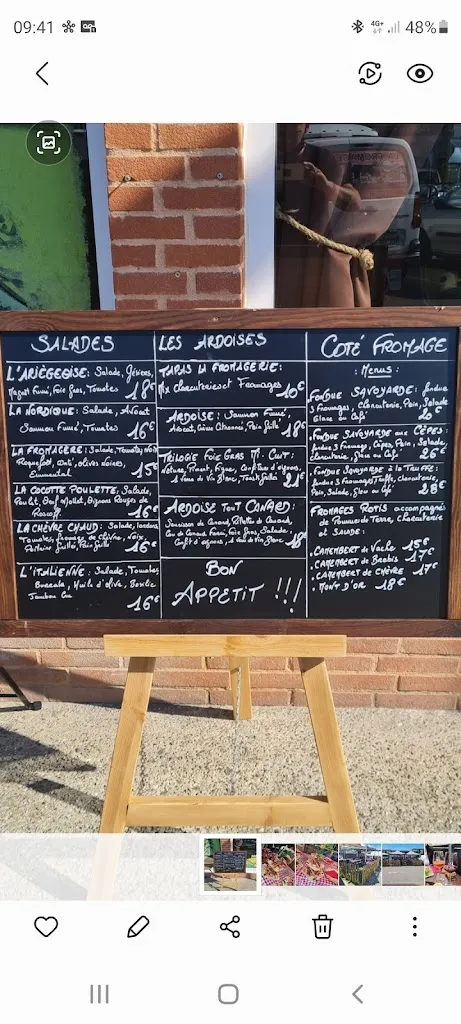 09:41
4G+
48%
SALADES
L'ARIÈGEOISE: Salade, Gésiers,
Magret Fumé, Foie Gras, Tomates 18€
LA NORDIQUE: Salade, Avocat
Saumon Fumé, Tomates 16€
LA FROMAGÈRE: Salade, Tomates, Noix
Roquefort, olives noires,
Emmental 15€
LA COCOTTE POULETTE, Salade,
Poulet, Oeuf Mollet, Oignons Rouges de
Roscoff 16€
LA CHÈVRE CHAUD: Salade, lardons
Tomates, fromage de chèvre, Noix,
Pain Grillé 16€
L'ITALIENNE: Salade, Tomates
Burrata, Huile d'olive, Basilic
Jambon Cru 16€
LES ARDOISES
TAPAS LA FROMAGERIE:
Mix Charcuteries et Fromages 10€
ARDOISE: Saumon Fumé,
Avocat, Crème Citronnée, Pain Grillé 18€
TRILOGIE FOIE GRAS MI-CUIT:
Nature, Piment, Figue, Confiture d'oignons,
1 verre de Vin Blanc, Toasts Grillés 21€
ARDOISE TOUT CANARD:
Saucisson de Canard, Rillettes de Canard,
Cou de Canard Farci, Foie Gras, Salade,
Confit d'oignons, 1 verre de Vin Blanc 18€
BON
APPETIT !!!
COTÉ FROMAGE
: Menus :
FONDUE SAVOYARDE: fondue
3 Fromages, Charcuterie, Pain, Salade
Glace ou Café 20€
FONDUE SAVOYARDE aux CÈPES:
fondue 3 fromages, Cèpes, Pain, Salade,
Charcuterie, Glace ou Café 26€
FONDUE SAVOYARDE à la TRUFFE:
fondue 3 Fromages Truffe, charcuterie,
Pain, Salade, Glace ou Café 28€
FROMAGES ROTIS accompagnés
de Pomme de Terre, Charcuterie
et SALADE:
. CAMEMBERT de Vache 15€
. CAMEMBERT de Brebis 17€
. CAMEMBERT de CHÈVRE 17€
. MONT D'OR 18€